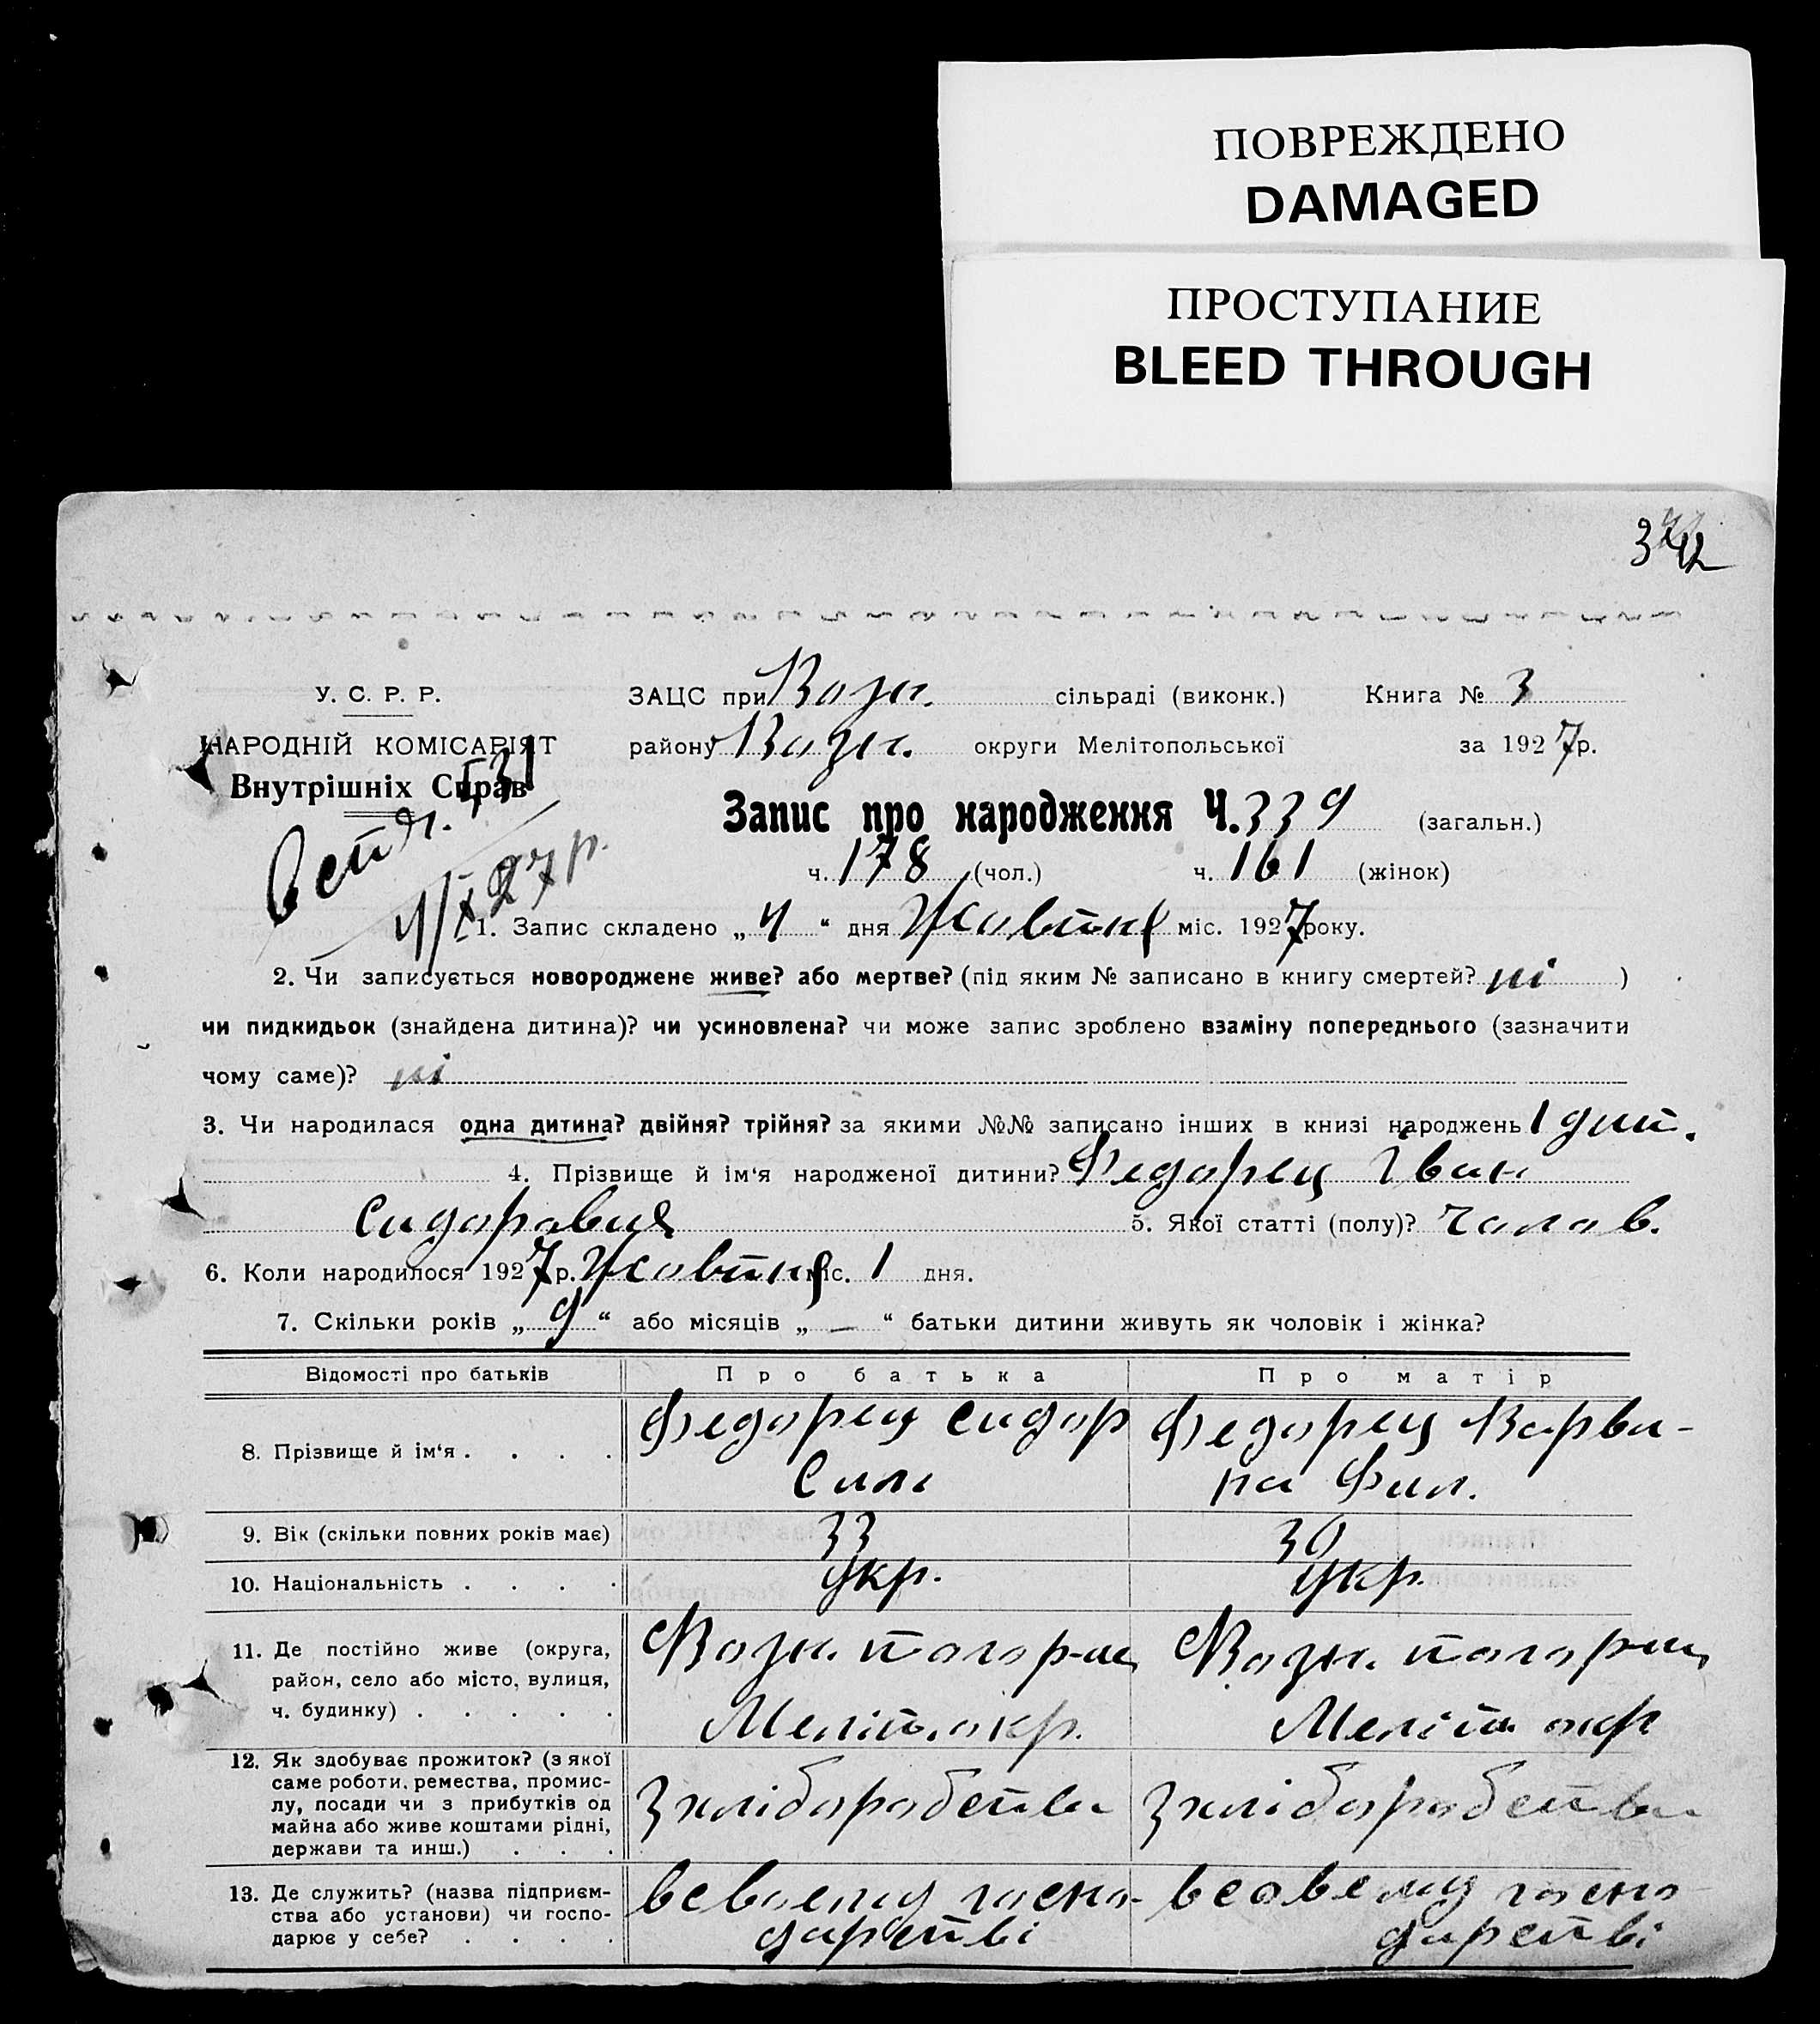 ПОВРЕЖДЕНО
DAMAGED
ПРОСТУПАНИЕ
BLEED THROUGH
У. С. Р. Р.
ЗАЦС при Возн. сільраді (виконк.) Книга № 3
НАРОДНІЙ КОМІСАРІЯТ
району Возн. округи Мелітопольської за 1927р.
Внутрішніх Справ
Запис про народження Ч. 339 (загальн.)
ч. 178 (чол.) ч. 161 (жінок)
27 р.
1. Запис складено „ 4 “ дня Жовтня міс. 1927 року.
2. Чи записується новороджене живе? або мертве? (під яким № записано в книгу смертей? ні )
чи пидкидьок (знайдена дитина)? чи усиновлена? чи може запис зроблено взаміну попереднього (зазначити
чому саме)? ні
3. Чи народилася одна дитина? двійня? трійня? за якими №№ записано інших в книзі народжень 1 дит.
4. Прізвище й ім‘я народженої дитини? Федорец Іван
Сидорович 5. Якої статті (полу)? чолов.
6. Коли народилося 1927 р. Жовтня міс. 1 дня.
7. Скільки років „ 9 “ або місяців „ — “ батьки дитини живуть як чоловік і жінка?
Відомості про батьків Про батька Про матір
8. Прізвище й ім‘я . . . .
Федорец Сидор
Сил.
Федорец Варва-
ра Фил.
9. Вік (скільки повних років має) 33 30
10. Національність . . . . укр. укр.
11. Де постійно живе (округа,
район, село або місто, вулиця,
ч. будинку) . . . . .
Возн. тогорищ
Меліт. окр.
Возн. тогорищ
Меліт. окр
12. Як здобуває прожиток? (з якої
саме роботи, ремества, промис-
лу, посади чи з прибутків од
майна або живе коштами рідні,
держави та инш.) . . .
З хліборобства
З хліборобства
13. Де служить? (назва підприєм-
ства або установи) чи госпо-
дарює у себе? . . . .
в своему госпо-
дарстві
в совему госпо-
дарстві